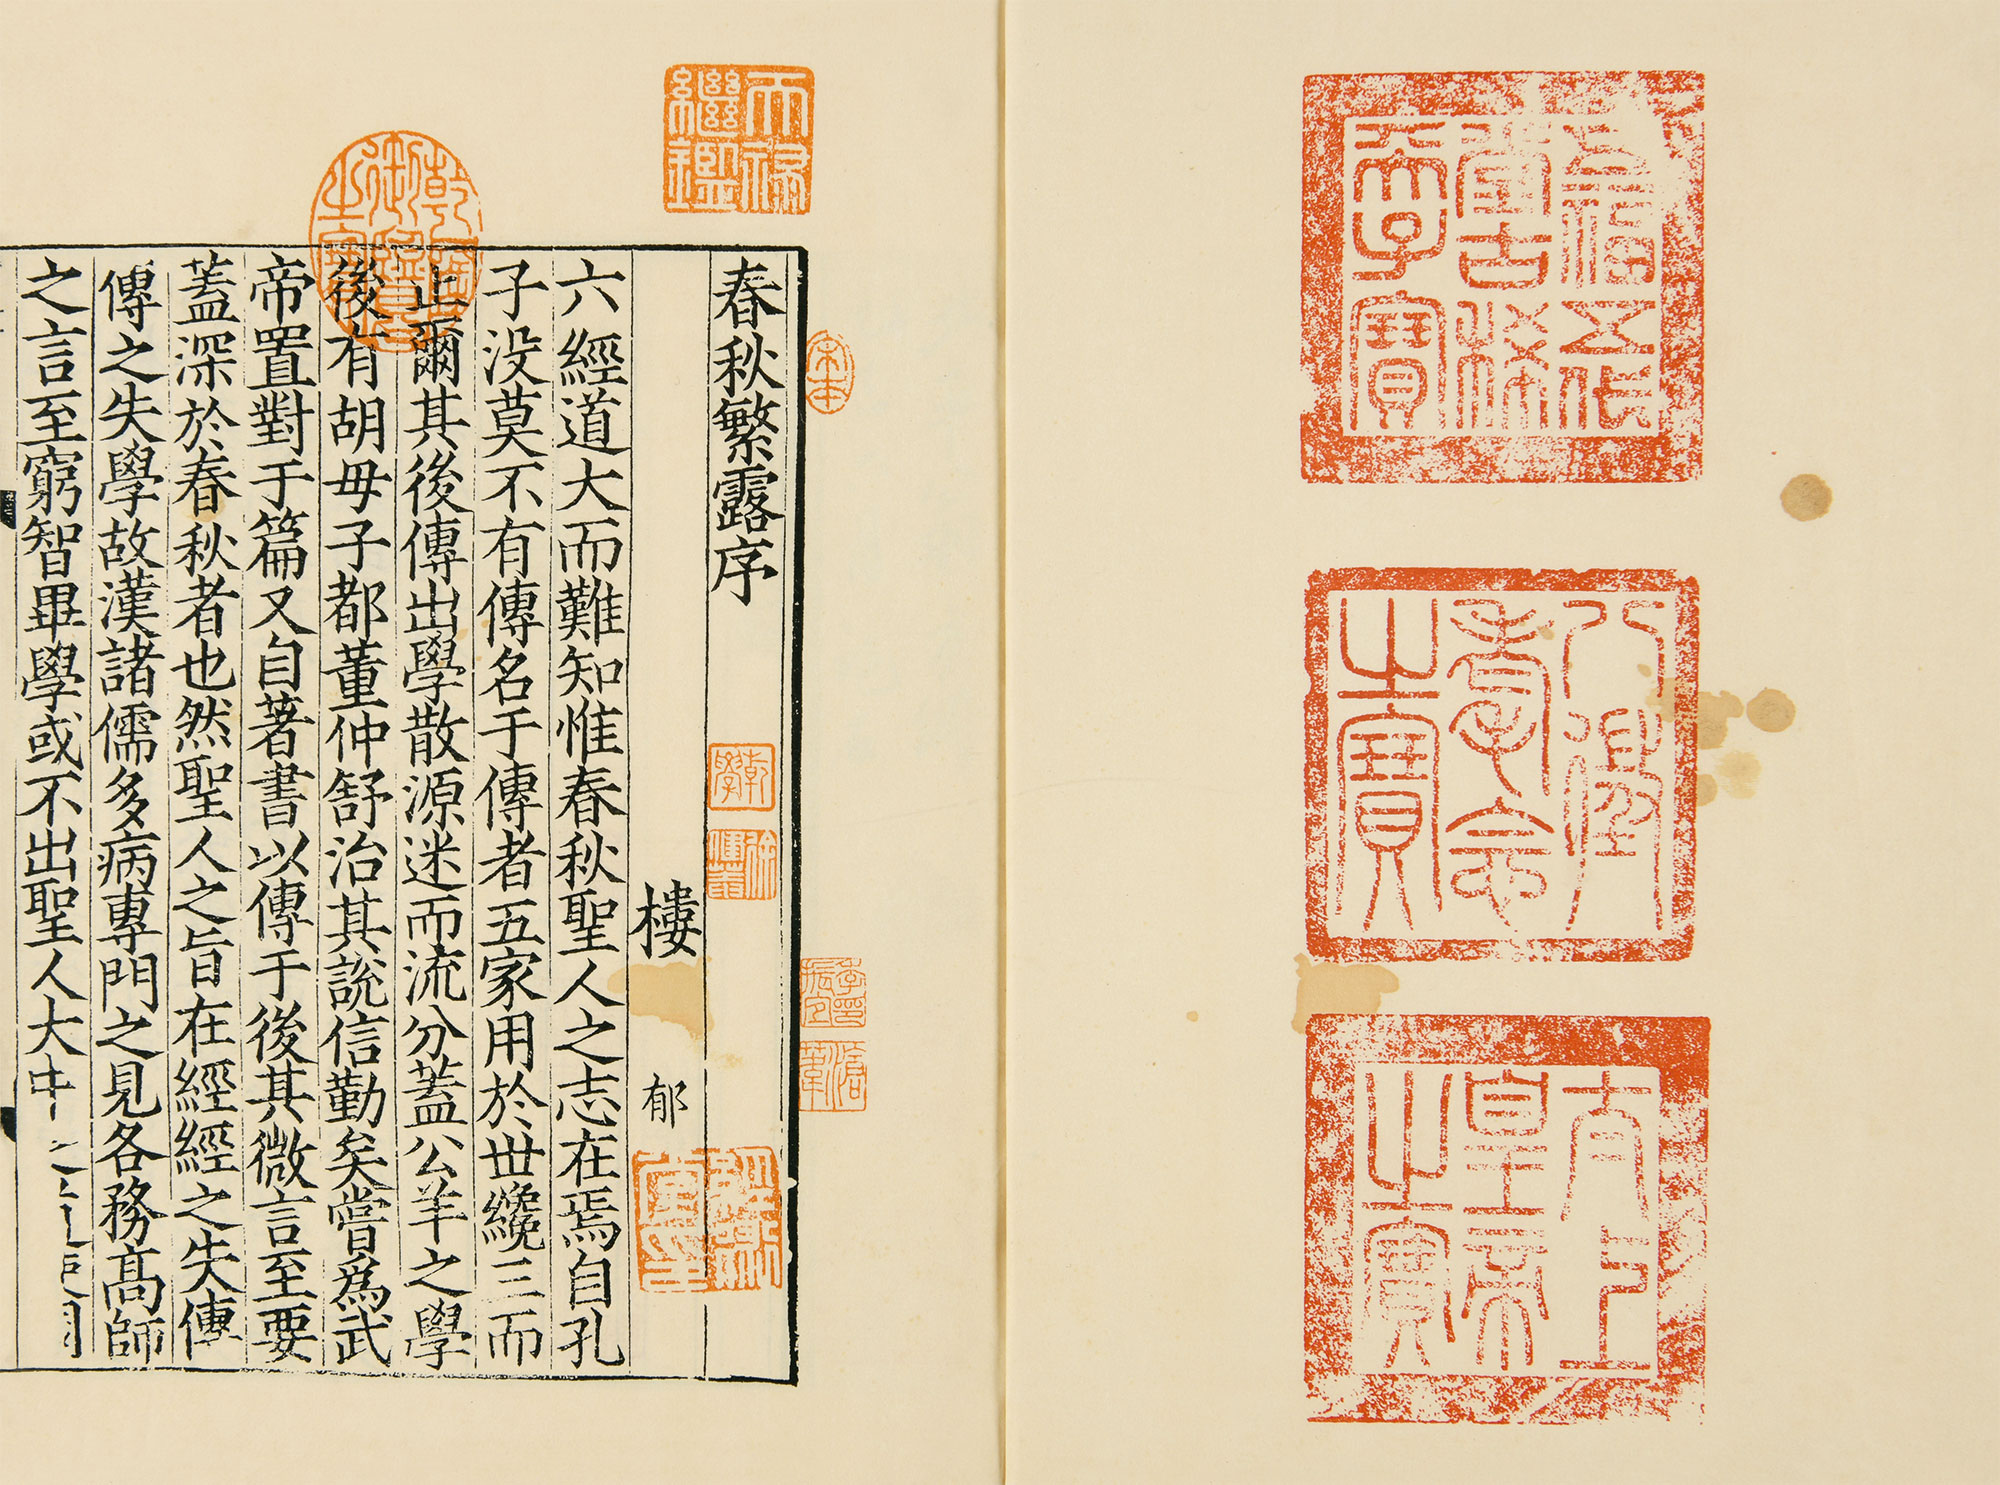 五福五代
堂古稀
天子寶
八徵
耄念
之寶
太上
皇帝
之寶
天祿
繼鑑
乾隆
御覽
之寶
宋本
春秋繁露序
樓 郁
六經道大而難知惟春秋聖人之志在焉自孔
子没莫不有傳名于傳者五家用於世纔三而
止爾其後傳出學散源迷而流分蓋公羊之學
後有胡毋子都董仲舒治其說信勤矣嘗為武
帝置對于篇又自著書以傳于後其微言至要
蓋深於春秋者也然聖人之旨在經經之失傳
傳之失學故漢諸儒多病專門之見各務髙師
之言至窮智畢學或不出聖人大中
乾學
徐健菴
季振宜印
滄葦